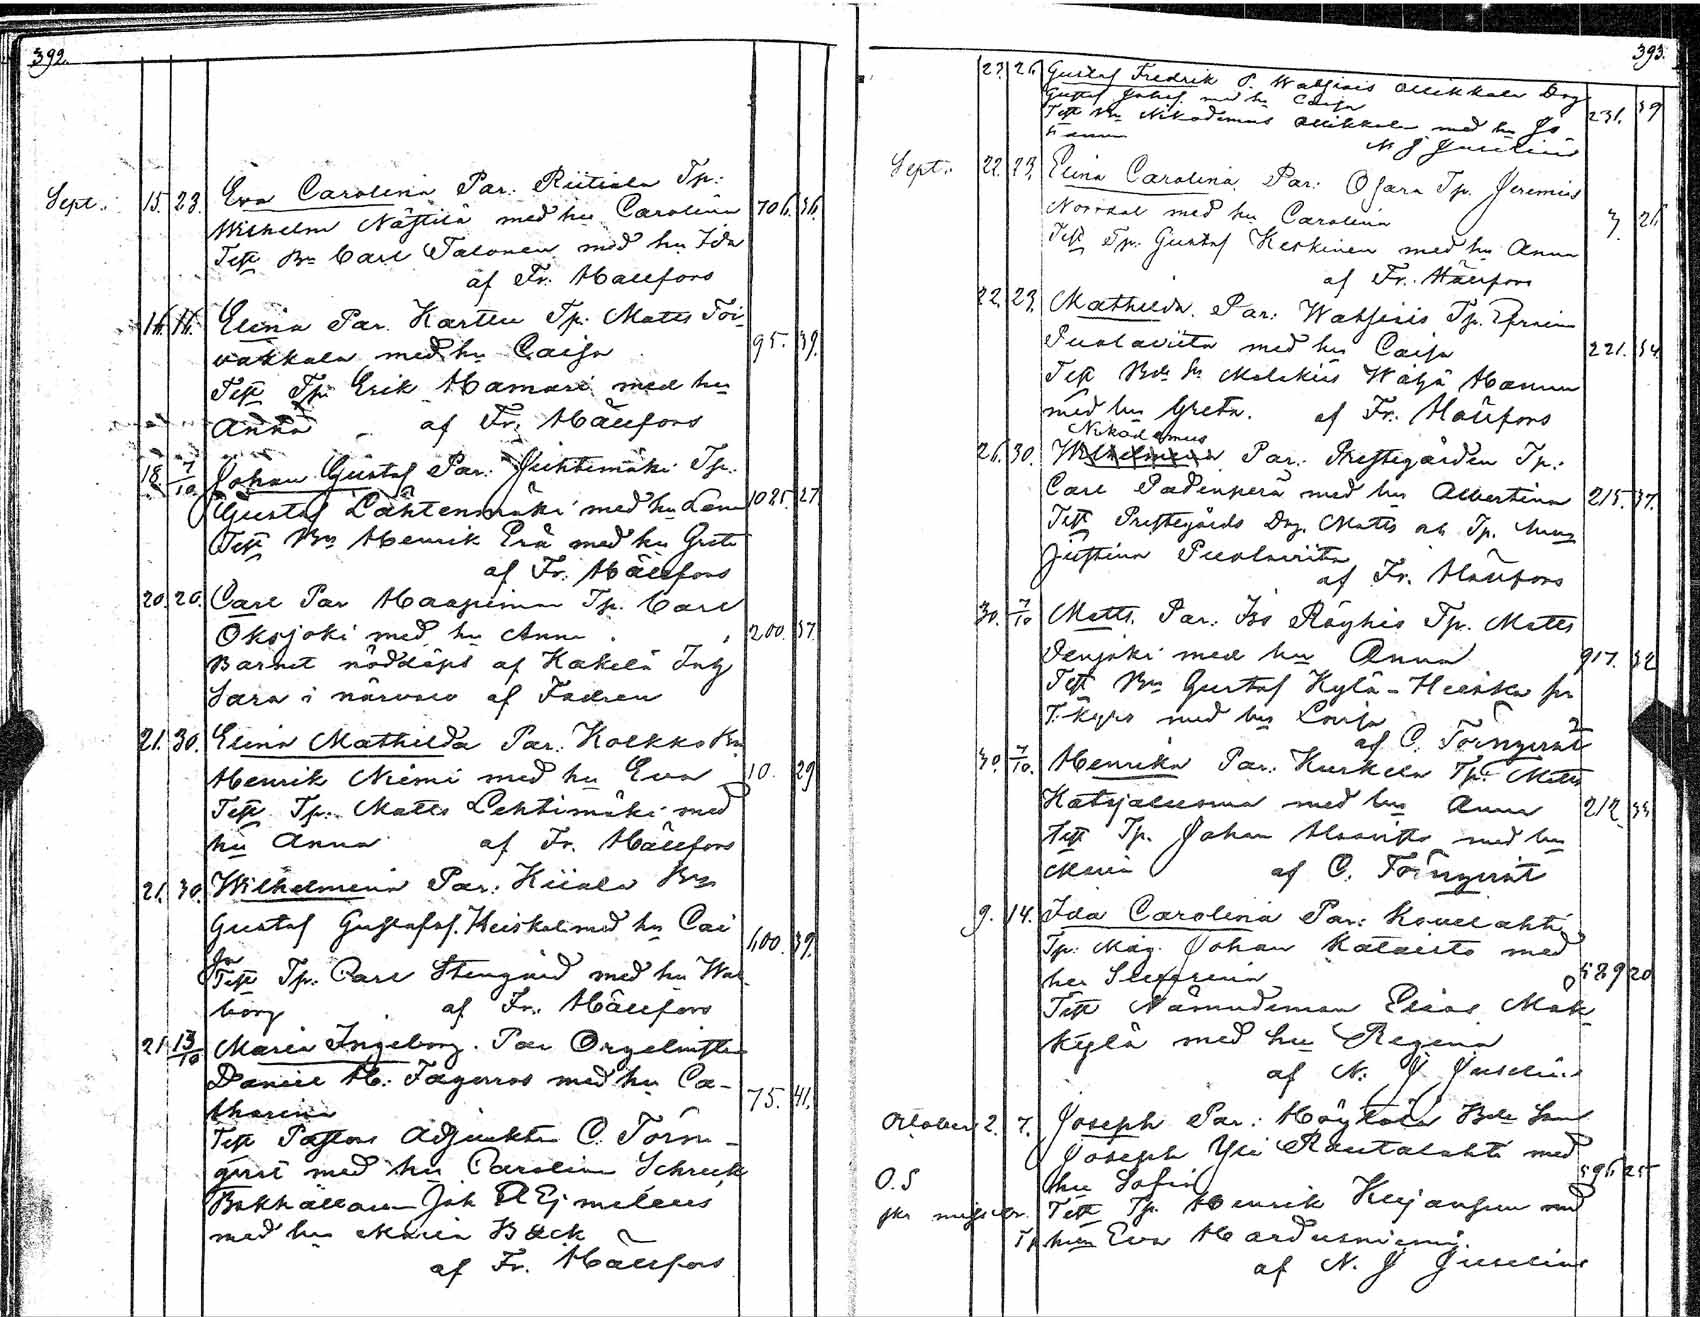 392.
Sept. 15. 23. Eva Carolina Par: Riitiala Tp:
Wilhelm Näppilä med hu Carolina 706. 36.
Test Bn Carl Talonen med hu Ida
af Fr. Hällfors
16. 16. Elina Par. Karttu Tp. Matts Toi-
vakkala med hu Caisa 95. 39.
Test Tp: Erik Hamari med hu
Anna af Fr. Hällfors
18. 7/10 Johan Gustaf Par: Juhtimäki Tp.
Gustaf Lähtenmäki med hu Lena 1025. 27.
Test Bn Henrik Erä med hu Greta
af Fr. Hällfors
20. 20. Carl Par Haapimaa Tp. Carl
Oksjoki med hu Anna 200. 37.
Barnet nöddöpt af Kakelä Inh
Sara i närvaro af Fadren
21. 30. Elina Mathilda Par. Kolkko Bn
Henrik Niemi med hu Eva 10. 29
Test Tp. Matts Lehtimäki med
hu Anna af Fr. Hällfors
21. 30. Wilhelmina Par: Kiiala Bn
Gustaf Gustafsf. Heiskal med hu Cai
sa 600. 39.
Test Tp: Carl Stengård med hu Wal
borg af Fr. Hällfors
21. 13/10 Maria Ingeborg. Par Orgelnisten
Daniel H: Fagerros med hu Ca-
tharina 75. 41.
Test Pastors Adjunkten C. Törn-
qvist med hu Carolina Schreck
Bokhållaren Joh A Ejmeleus
med hu Maria Bäck
af Fr. Hällfors
393.
23. 26. Gustaf Fredrik P. Wahsiois Ollikkala Drg
Gustaf Johsf. med hu Caisa 231. 39
Test Bn Nikodemus Ollikkala med hu Jo-
hanna N J Juselius
Sept. 22. 23. Elina Carolina. Par: Ojara Tp. Jeremias
Norrdal med hu Carolina 7. 26
Test Tp. Gustaf Keskinen med hu Anna
af Fr. Hällfors
22. 23. Mathilda. Par: Wahsiois Tp. Efraim
Puolaviita med hu Caisa 221. 34.
Test Malakias Wähä Hannu
med hu Greta. af Fr. Hällfors
Nikodemus
26. 30. Wilhelmina Par: Prestegården Tp:
Carl Padenperä med hu Albertina 215. 37.
Test Prestegårds Drg. Matts och Tp. hust
Justina Puolaviita
af Fr. Hällfors
30. 7/10 Matts. Par: Iso Röyhis Tp. Matts
Venjoki med hu Anna 917. 32
Test Bn Gustaf Kylä-Heiska fr
T. kyro med hu Lovisa
af C. Törnqvist
30. 7/10. Henrika Par: Kurkela Tp: Matts
Katajaluoma med hu Anna 212. 33
Test Tp. Johan Haavisto med hu
Maria af C. Törnqvist
9. 14. Ida Carolina Par: Kouvlahti
Tp: Måg. Johan Kataisto med
hu Serafina 529 20
Test Nämndeman Elias Mäk-
kylä med hu Regina
af N. J. Juselius
October 2. 7. Joseph Par: Höykölä Bde Son
Joseph Yli Rautalahti med
O.S hu Sofia 596 25
Test Tp. Henrik Kujanpää med
hu Eva Hardusniemi.
af N. J Juselius